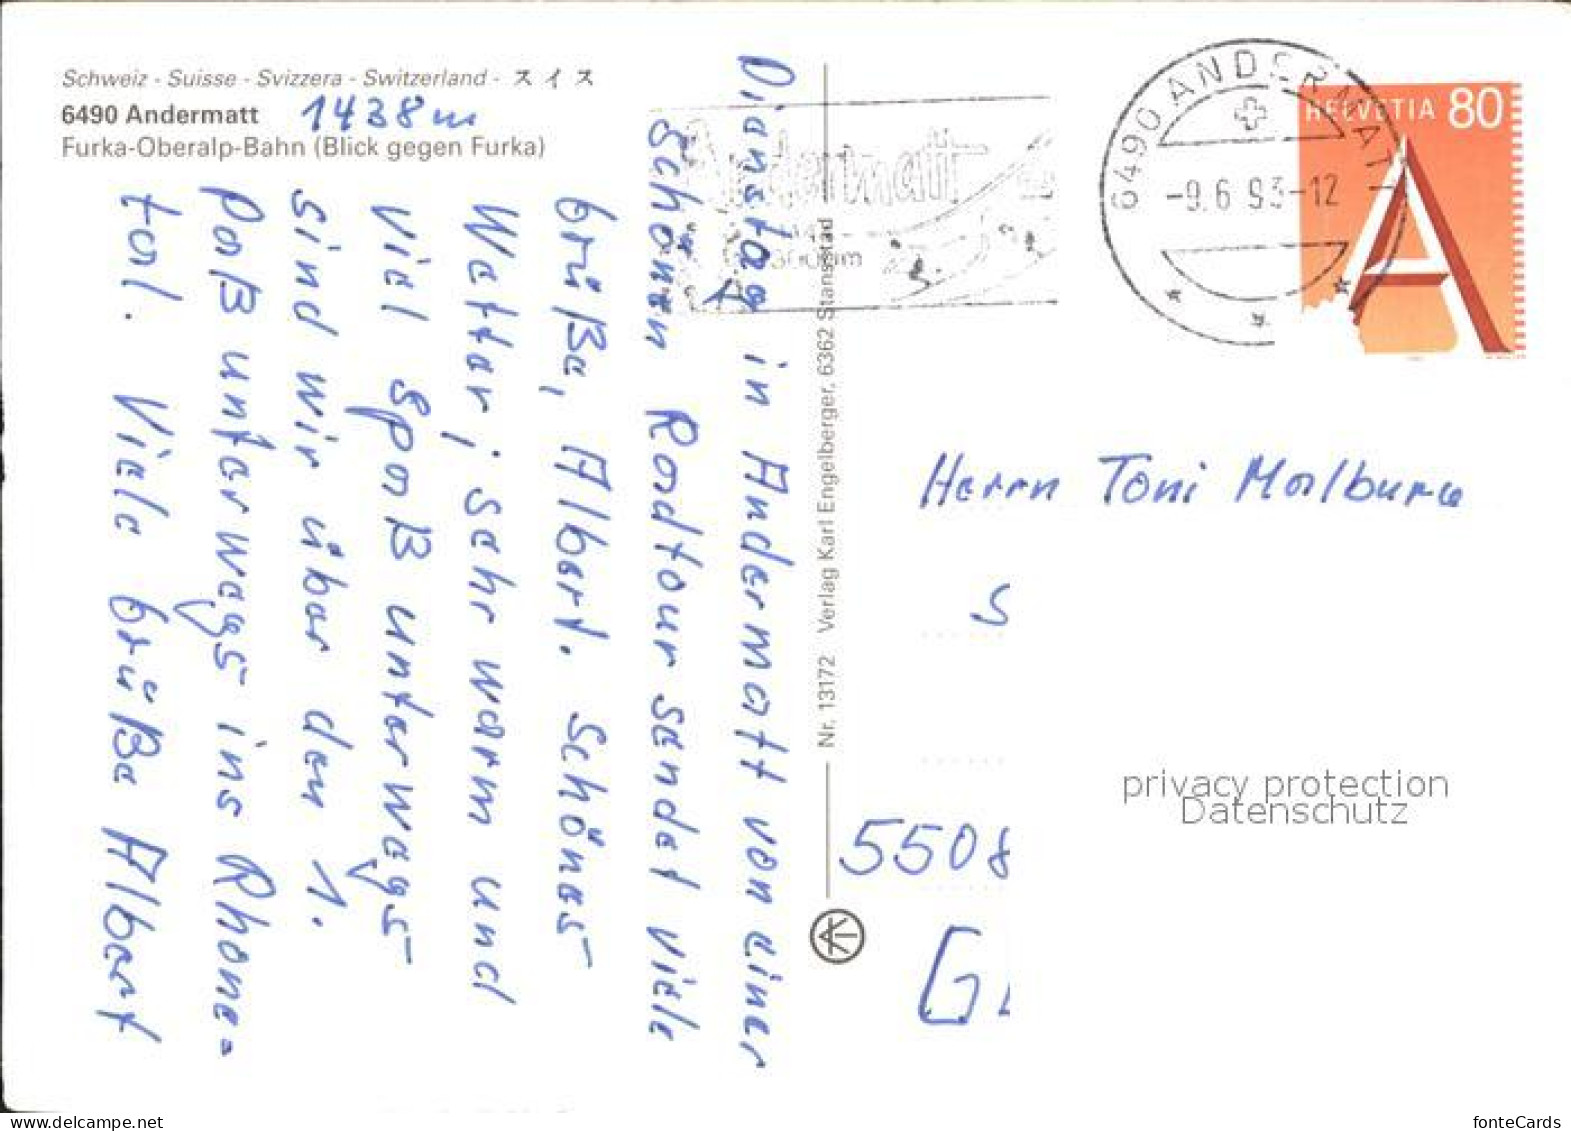 Schweiz - Suisse - Svizzera - Switzerland - スイス
6490 Andermatt 1438 m
Furka-Oberalp-Bahn (Blick gegen Furka)
Dienstag in Andermatt von einer
schönen Radtour sendet viele
Grüße, Albert. Schönes
Wetter; sehr warm und
viel Spaß unterwegs
sind wir über den 1.
Paß unterwegs ins Rhone=
tal. Viele Grüße Albert
Andermatt
3000 m
6490 ANDERMATT
-9.6.93-12
HELVETIA 80
A
Nr. 13172 Verlag Karl Engelberger, 6362 Stansstad
Herrn Toni Malburg
S
5508
G
privacy protection
Datenschutz
fonteCards